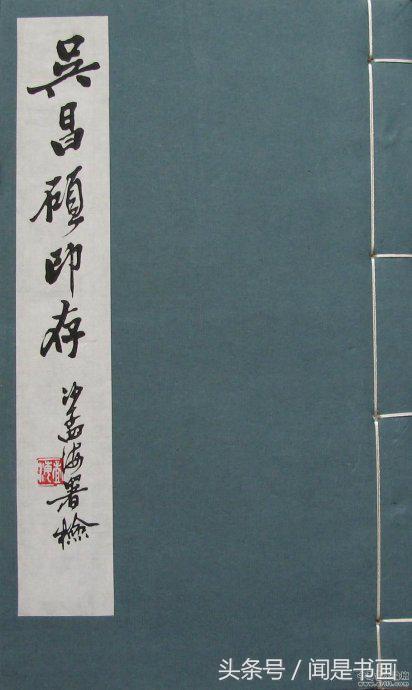 吴昌硕印存
沙孟海署检
头条号/闻是书画